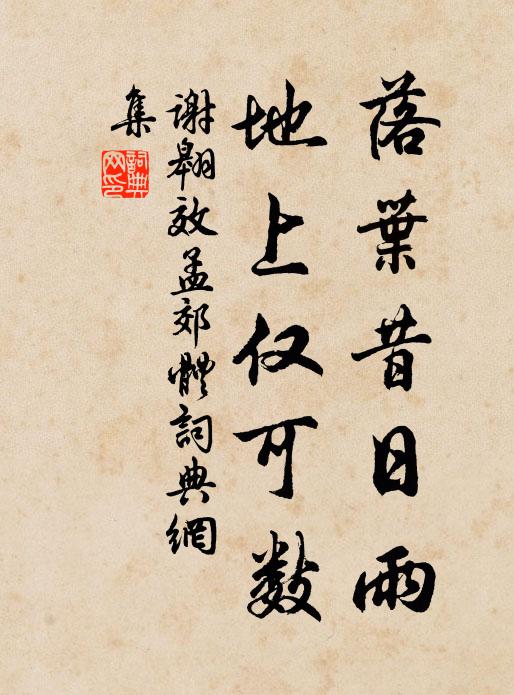 落葉昔日雨
地上仅可数
謝翱效孟郊體詞典網
集
詞典網印